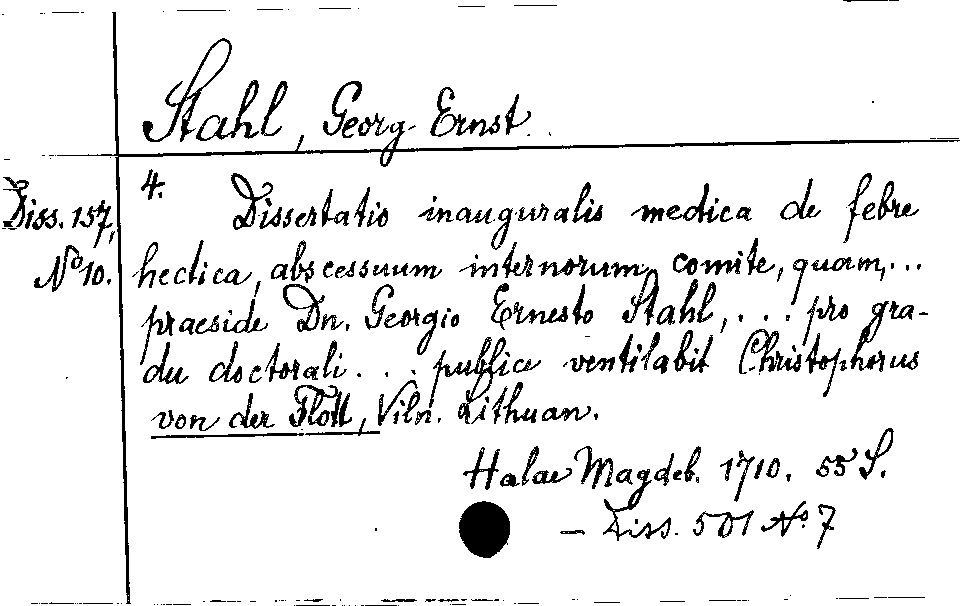 Stahl, Georg Ernst.
4.
Diss. 157,
No 10.
Dissertatio inauguralis medica de febre
hectica, abscessuum internorum comite, quam,...
praeside Dn. Georgio Ernesto Stahl,... pro gra-
du doctorali... publice ventilabit Christophorus
von der Flott, Viln. Lithuan.
Halae Magdeb. 1710. 55 S.
— Diss. 501 No 7